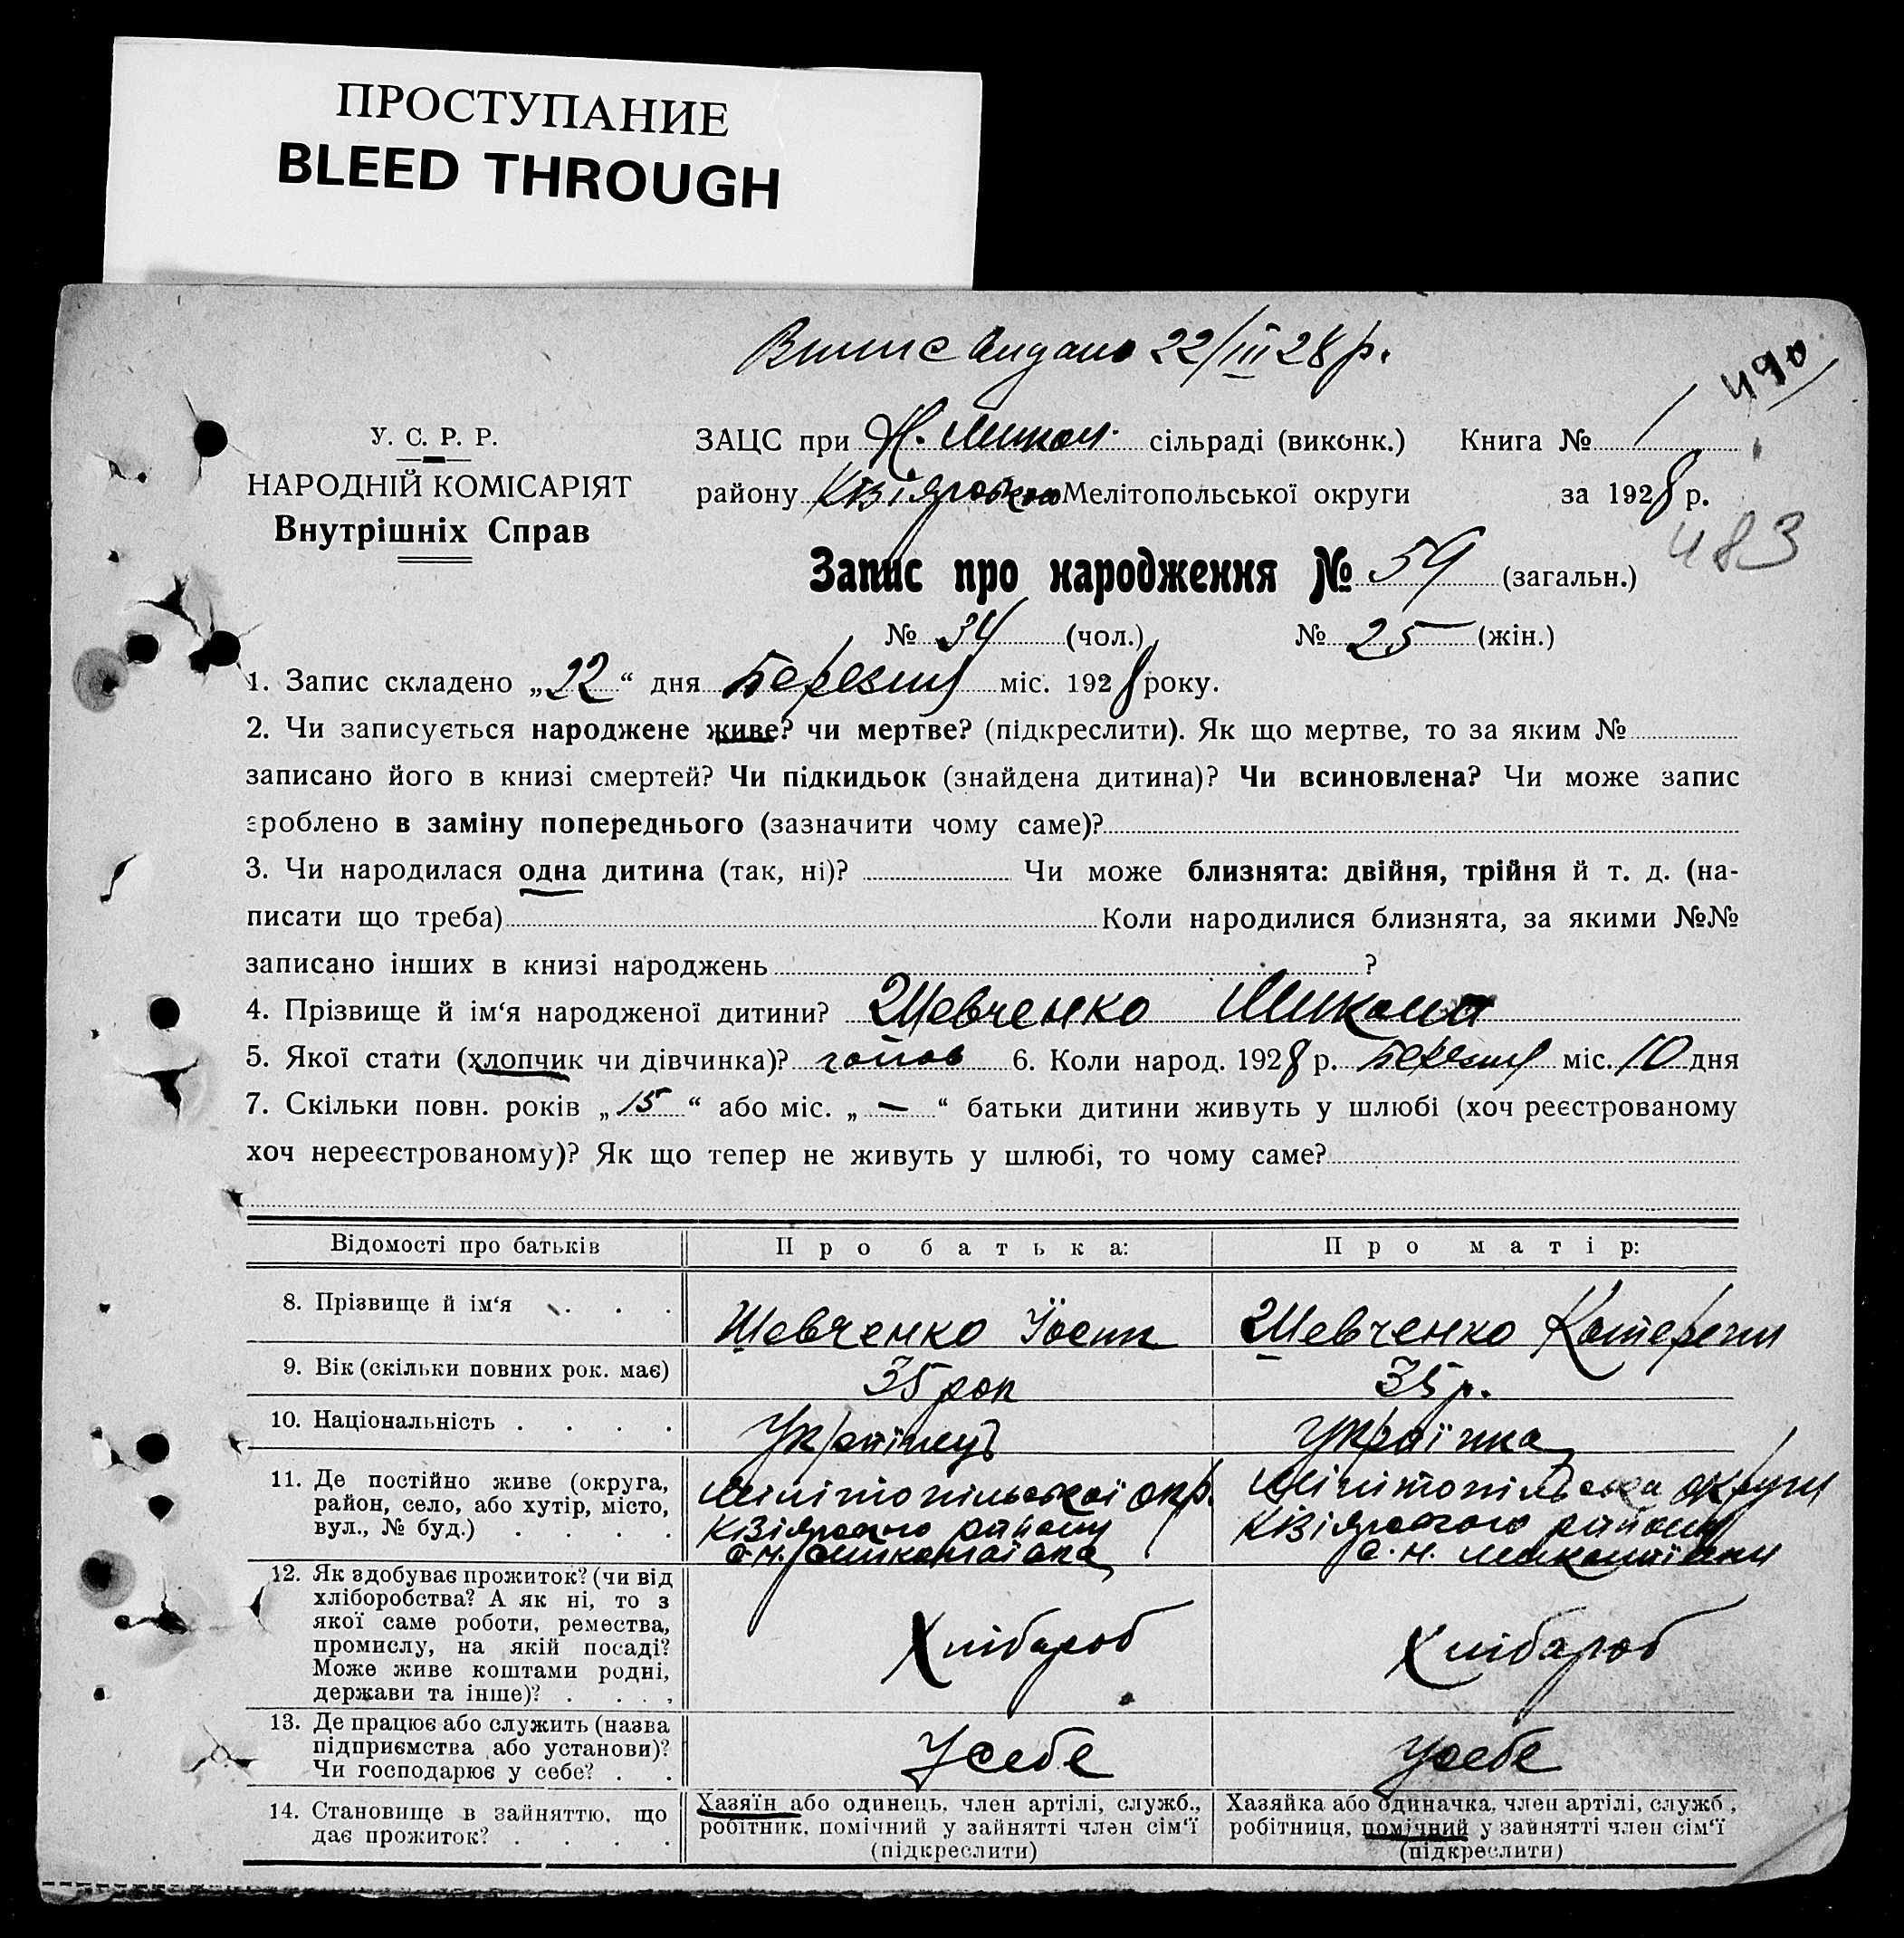 ПРОСТУПАНИЕ
BLEED THROUGH
Випис видано 22/III 28 р.
490
У. С. Р. Р.
НАРОДНІЙ КОМІСАРІЯТ
Внутрішніх Справ
ЗАЦС при Н. Микол. сільраді (виконк.) Книга № 1
району Мелітопольської округи за 1928 р.
483
Запис про народження № 59 (загальн.)
№ 34 (чол.) № 25 (жін.)
1. Запис складено „22“ дня Березня міс. 1928 року.
2. Чи записується народжене живе? чи мертве? (підкреслити). Як що мертве, то за яким №
записано його в книзі смертей? Чи підкидьок (знайдена дитина)? Чи всиновлена? Чи може запис
зроблено в заміну попереднього (зазначити чому саме)?
3. Чи народилася одна дитина (так, ні)? Чи може близнята: двійня, трійня й т. д. (на-
писати що треба) Коли народилися близнята, за якими №№
записано інших в книзі народжень ?
4. Прізвище й ім‘я народженої дитини? Шевченко Микола
5. Якої стати (хлопчик чи дівчинка)? 6. Коли народ. 1928 р. Березня міс. 10 дня
7. Скільки повн. років „15“ або міс. „—“ батьки дитини живуть у шлюбі (хоч реєстрованому
хоч нереєстрованому)? Як що тепер не живуть у шлюбі, то чому саме?
Відомості про батьків Про батька: Про матір:
8. Прізвище й ім‘я . . . Шевченко Йосип Шевченко Катерина
9. Вік (скільки повних рок. має) 35 рок 35 р.
10. Національність . . . . Українец Українка
11. Де постійно живе (округа,
район, село, або хутір, місто,
вул., № буд.) . . . .
Мілітопільської окр.
Кізіярского району
с. Н. Миколаївка
Мілітопільська округи
Кізіярского району
с. Н. Миколаївки
12. Як здобуває прожиток? (чи від
хліборобства? А як ні, то з
якої саме роботи, ремества,
промислу, на якій посаді?
Може живе коштами родні,
держави та інше)? . . . .
Хлібароб Хлібароб
13. Де працює або служить (назва
підприємства або установи)?
Чи господарює у себе? . .
У себе У себе
14. Становище в зайняттю, що
дає прожиток? . . . .
Хазяїн або одинець, член артілі, служб.,
робітник, помічний у зайнятті член сім‘ї
(підкреслити)
Хазяйка або одиначка, член артілі, служб.,
робітниця, помічний у зайнятті член сім‘ї
(підкреслити)